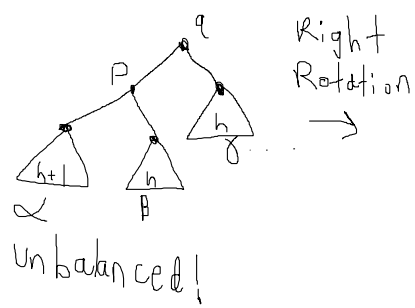 q
Right
Rotation
P
h
h+1
h
γ....
α
β
unbalanced!